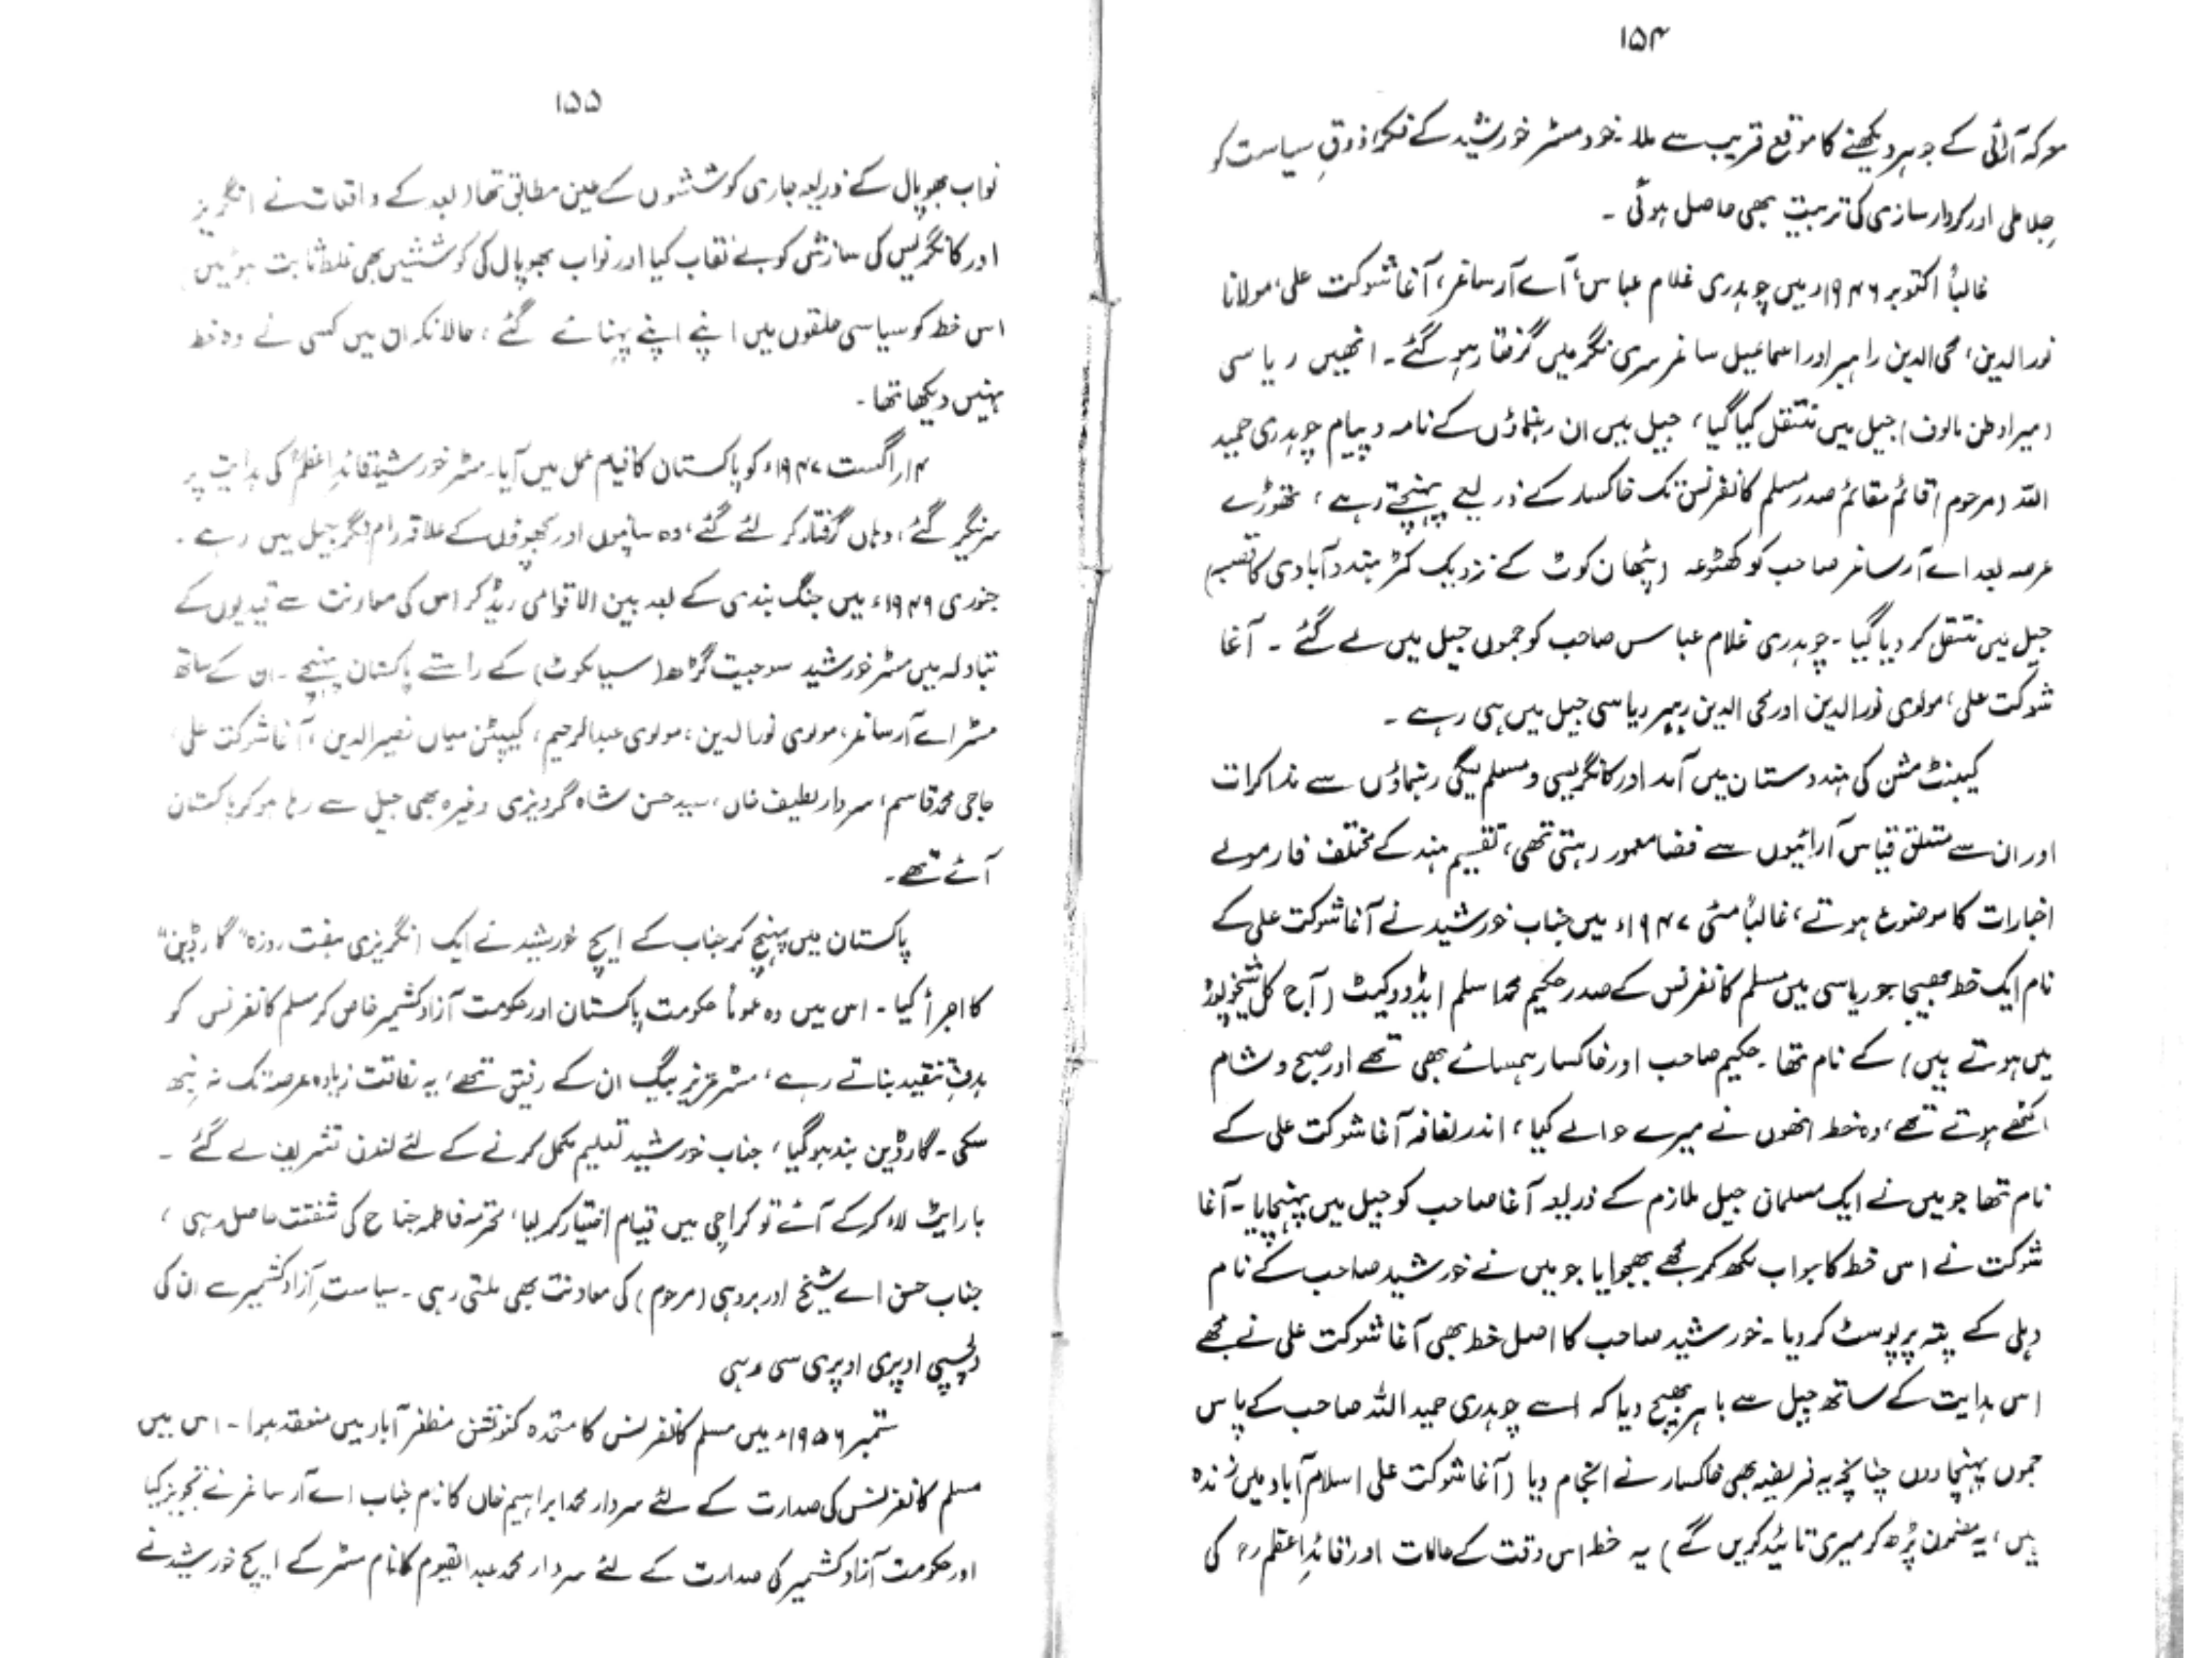 ۱۵۴
معرکہ آرائی کے جوہر دیکھنے کا موقع قریب سے ملا۔ خود مسٹر خورشید کے فکر و ذوقِ سیاست کو
جِلا ملی اور کردار سازی کی تربیت بھی حاصل ہوئی ۔
غالباً اکتوبر ۱۹۴۶ء میں چوہدری غلام عباس، اے آر ساغر، آغا شوکت علی، مولانا
نورالدین، محی الدین راہبر اور اسماعیل ساغر سری نگر میں گرفتار ہو گئے۔ انھیں ریاسی
(میرا وطن مالوف) جیل میں منتقل کیا گیا، جیل میں ان رہنماؤں کے نامہ و پیام چوہدری حمید
اللہ (مرحوم) قائم مقائم صدر مسلم کانفرنس تک خاکسار کے ذریعے پہنچتے رہے، تھوڑے
عرصہ بعد اے آر ساغر صاحب کو کھٹوعہ (پٹھان کوٹ کے نزدیک کٹر ہندو آبادی کا قصبہ)
جیل میں منتقل کر دیا گیا ۔ چوہدری غلام عباس صاحب کو جموں جیل میں لے گئے ۔ آغا
شوکت علی، مولوی نورالدین اور محی الدین رہبر ریاسی جیل میں ہی رہے ۔
کیبنٹ مشن کی ہندوستان میں آمد اور کانگریسی و مسلم لیگی رہنماؤں سے مذاکرات
اور ان سے متعلق قیاس آرائیوں سے فضا معمور رہتی تھی، تقسیم ہند کے مختلف فارمولے
اخبارات کا موضوع ہوتے، غالباً مئی ۱۹۴۷ء میں جناب خورشید نے آغا شوکت علی کے
نام ایک خط بھیجا جو ریاسی میں مسلم کانفرنس کے صدر حکیم محمد اسلم ایڈووکیٹ (آج کل شیخوپورہ
میں ہوتے ہیں) کے نام تھا ۔ حکیم صاحب اور خاکسار ہمسائے بھی تھے اور صبح و شام
اکٹھے ہوتے تھے، وہ خط انھوں نے میرے حوالے کیا، اندر لفافہ آغا شوکت علی کے
نام تھا جو میں نے ایک مسلمان جیل ملازم کے ذریعہ آغا صاحب کو جیل میں پہنچایا ۔ آغا
شوکت نے اس خط کا جواب لکھ کر مجھے بھجوایا جو میں نے خورشید صاحب کے نام
دہلی کے پتہ پر پوسٹ کر دیا ۔ خورشید صاحب کا اصل خط بھی آغا شوکت علی نے مجھے
اس ہدایت کے ساتھ جیل سے باہر بھیج دیا کہ اسے چوہدری حمید اللہ صاحب کے پاس
جموں پہنچا دوں چنانچہ یہ فریضہ بھی خاکسار نے انجام دیا (آغا شوکت علی اسلام آباد میں زندہ
ہیں، یہ مضمون پڑھ کر میری تائید کریں گے) یہ خط اس وقت کے حالات اور قائدِاعظمؒ کی
۱۵۵
نواب بھوپال کے ذریعہ جاری کوششوں کے عین مطابق تھا (بعد کے واقعات نے انگریز
اور کانگریس کی سازش کو بے نقاب کیا اور نواب بھوپال کی کوششیں بھی غلط ثابت ہوئیں
اس خط کو سیاسی حلقوں میں اپنے اپنے پہنائے گئے، حالانکہ ان میں کسی نے وہ خط
نہیں دیکھا تھا ۔
۱۴ اگست ۱۹۴۷ء کو پاکستان کا قیام عمل میں آیا۔ مسٹر خورشید قائدِاعظمؒ کی ہدایت پر
سرنگر گئے، وہاں گرفتار کر لئے گئے، وہ سانپوں اور بچھوؤں کے علاقہ رام نگر جیل میں رہے ۔
جنوری ۱۹۴۹ء میں جنگ بندی کے بعد بین الاقوامی ریڈ کراس کی معاونت سے قیدیوں کے
تبادلہ میں مسٹر خورشید سوجیت گڑھ (سیالکوٹ) کے راستے پاکستان پہنچے ۔ ان کے ساتھ
مسٹر اے آر ساغر، مولوی نورالدین، مولوی عبدالرحیم، کیپٹن میاں نصیر الدین، آغا شوکت علی،
حاجی محمد قاسم، سردار لطیف خاں، سید حسن شاہ گردیزی وغیرہ بھی جیل سے رہا ہو کر پاکستان
آئے تھے۔
پاکستان میں پہنچ کر جناب کے ایچ خورشید نے ایک انگریزی ہفت روزہ "گارڈین"
کا اجرأ کیا ۔ اس میں وہ عموماً حکومت پاکستان اور حکومت آزاد کشمیر خاص کر مسلم کانفرنس کو
ہدفِ تنقید بناتے رہے، مسٹر عزیز بیگ ان کے رفیق تھے، یہ رفاقت زیادہ عرصہ تک نہ نبھ
سکی ۔ گارڈین بند ہو گیا، جناب خورشید تعلیم مکمل کرنے کے لئے لندن تشریف لے گئے ۔
بارایٹ لاء کر کے آئے تو کراچی میں قیام اختیار کر لیا، محترمہ فاطمہ جناح کی شفقت حاصل رہی،
جناب حسن اے شیخ اور بروہی (مرحوم) کی معاونت بھی ملتی رہی ۔ سیاستِ آزاد کشمیر سے ان کی
دلچسپی اوپری اوپری سی رہی
ستمبر ۱۹۵۶ء میں مسلم کانفرنس کا متحدہ کنونشن مظفر آباد میں منعقد ہوا ۔ اس میں
مسلم کانفرنس کی صدارت کے لئے سردار محمد ابراہیم خاں کا نام جناب اے آر ساغر نے تجویز کیا
اور حکومت آزاد کشمیر کی صدارت کے لئے سردار محمد عبدالقیوم کا نام مسٹر کے ایچ خورشید نے